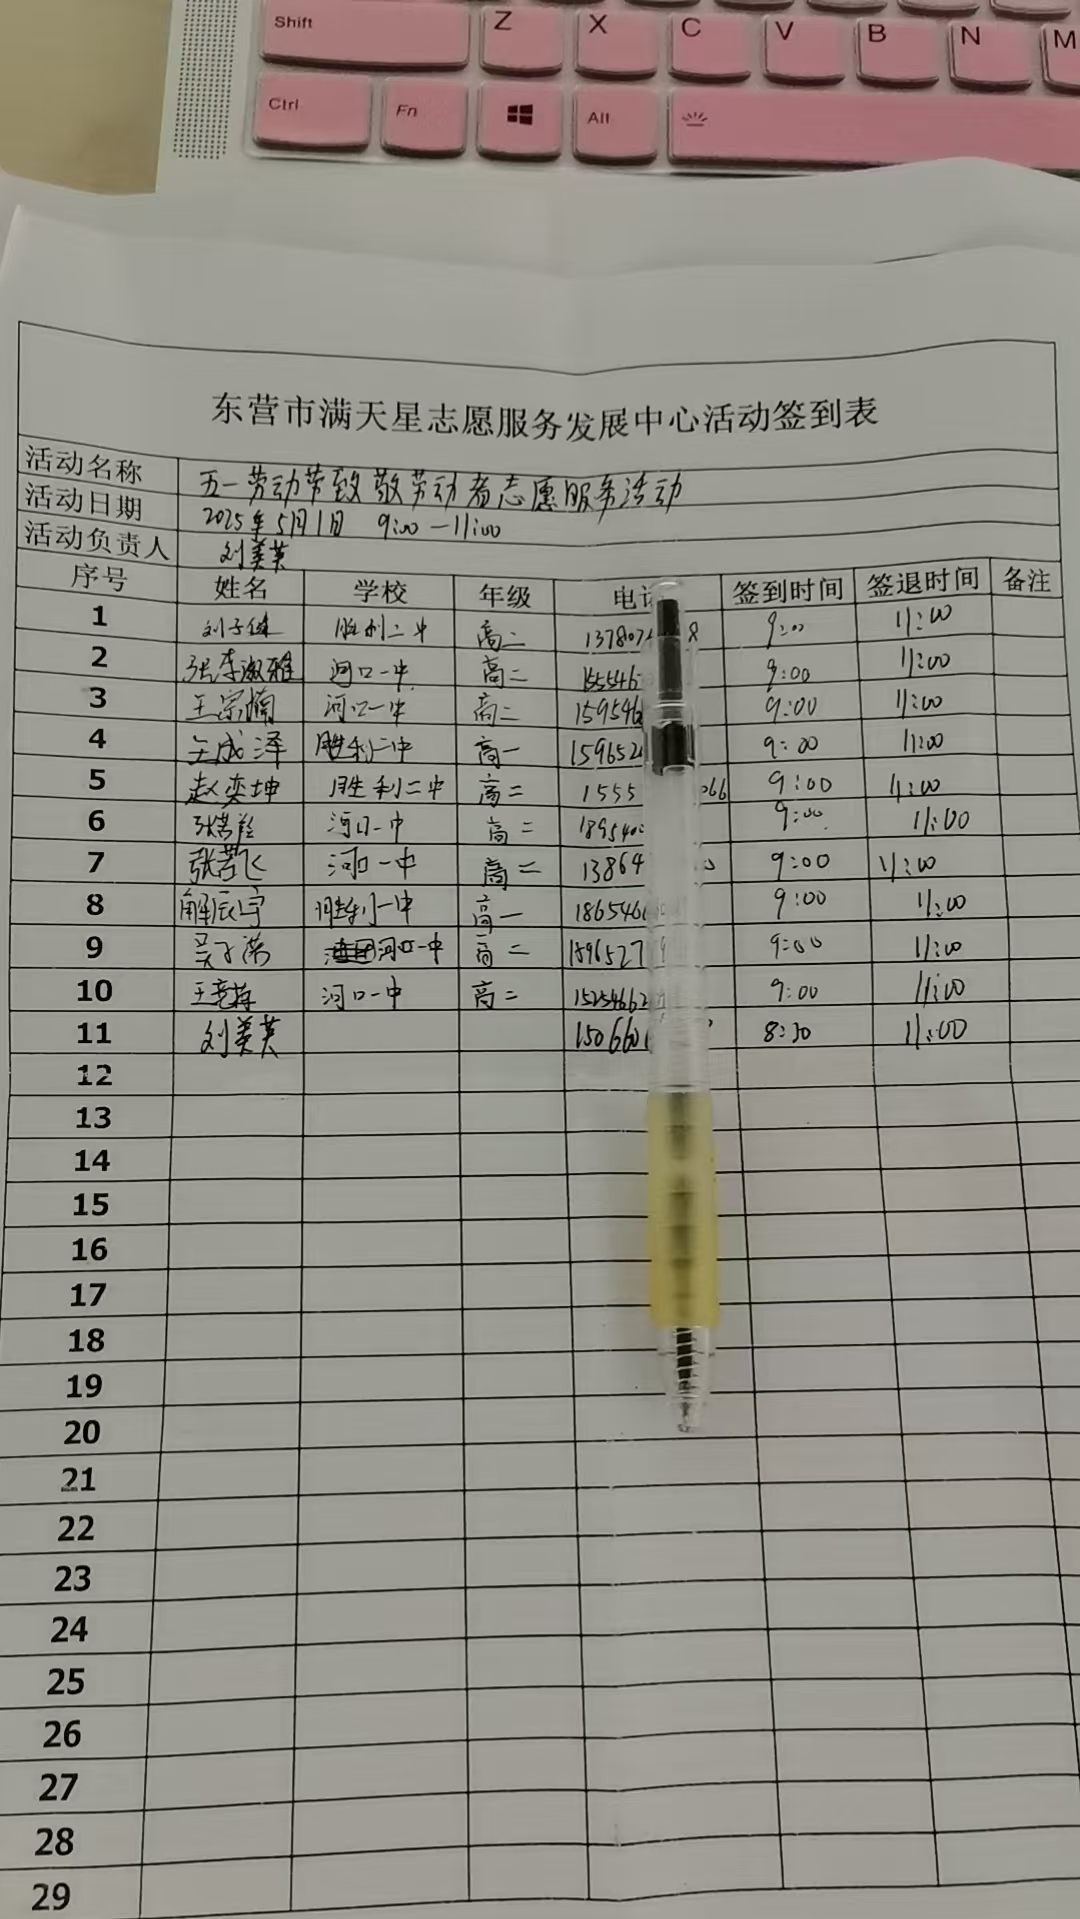 Shift Z X C V B N M
Ctrl Fn Alt
东营市满天星志愿服务发展中心活动签到表
活动名称 五一劳动节致敬劳动者志愿服务活动
活动日期 2025年5月1日 9:00-11:00
活动负责人 刘美英
序号 姓名 学校 年级 电话 签到时间 签退时间 备注
1 刘子健 胜利二中 高二 137807 8 9:00 11:00
2 张李淑雅 河口一中 高二 155546 9:00 11:00
3 王宗楠 河口一中 高二 159546 9:00 11:00
4 王成泽 胜利二中 高一 159652 9:00 11:00
5 赵奕坤 胜利二中 高二 1555 066 9:00 11:00
6 河口一中 高二 189540 9:00 11:00
7 张若飞 河口一中 高二 13864 9:00 11:00
8 解辰宇 胜利一中 高一 186546 9:00 11:00
9 河口一中 高二 1896527 9 9:00 11:00
10 河口一中 高二 15254662 9:00 11:00
11 刘美英 150660 8:30 11:00
12
13
14
15
16
17
18
19
20
21
22
23
24
25
26
27
28
29